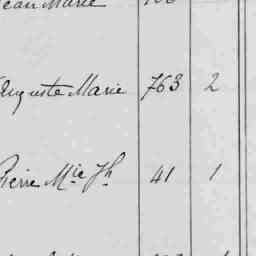 Jean Marie
Auguste Marie 763 2
Pierre Mie Jh 41 1